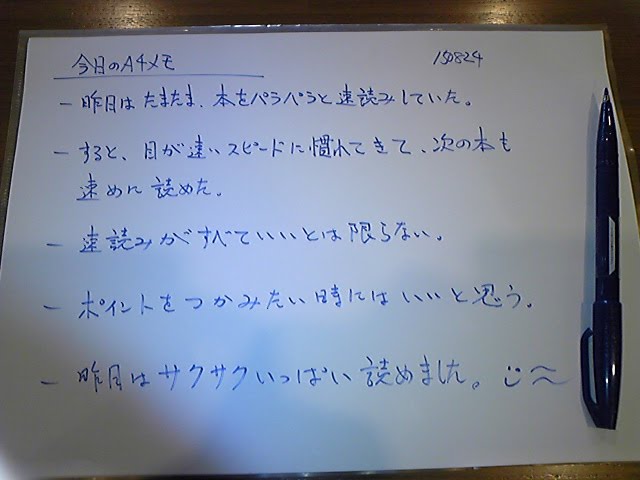 今日のA4メモ 150824
－昨日は たまたま、本をペラペラと速読みしていた。
－すると、目が速いスピードに慣れてきて、次の本も
速めに読めた。
－速読みがすべていいとは限らない。
－ポイントをつかみたい時にはいいと思う。
－昨日はサクサクいっぱい読めました。